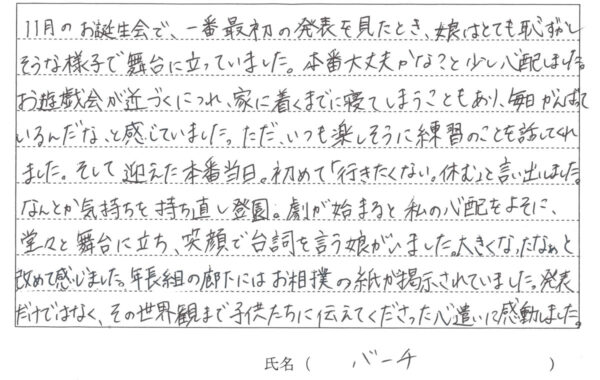 11月のお誕生会で、一番最初の発表を見たとき、娘はとても恥ずかし
そうな様子で舞台に立っていました。本番大丈夫かなあと少し心配しました。
お遊戯会が近づくにつれ、家に着くまでに寝てしまうこともあり、毎日がんばって
いるんだな、と感じていました。ただ、いつも楽しそうに練習のことを話してくれ
ました。そして迎えた本番当日。初めて「行きたくない。休む」と言い出しました。
なんとか気持ちを持ち直し登園。劇が始まると私の心配をよそに、
堂々と舞台に立ち、笑顔で台詞を言う娘がいました。大きくなったなぁと
改めて感じました。年長組の廊下にはお相撲の紙が掲示されていました。発表
だけではなく、その世界観まで子供たちに伝えてくださった心遣いに感動しました。
氏名（ バーチ ）